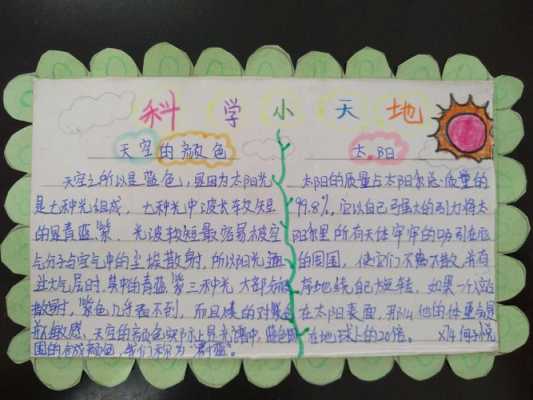 科学小天地
天空的颜色
天空之所以是蓝色，是因为太阳光
是七种光组成，七种光中波长较短
的是青蓝紫，光波较短最容易被空
气分子与空气中的尘埃散射，所以阳光通
过大气层时，其中的青蓝紫三种光大部分被
散射，紫色几乎看不到，而且
敏感，天空的颜色实际上是光谱中，蓝色
的合成颜色，我们称为
太阳
太阳的质量占太阳系总质量的
99.8%，它以自己强大的引力将太
阳系里所有天体牢牢的吸引在
的周围，使它们不离不散，井有
地绕自己旋转，如果一个人站
在太阳表面，那么他的体重是
在地球上的20倍。